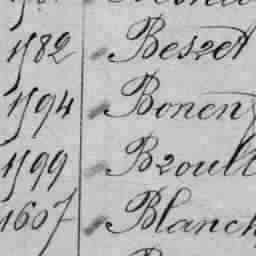 1582 Beszet
1594 Bonen
1599 Bzoult
1607 Blanch